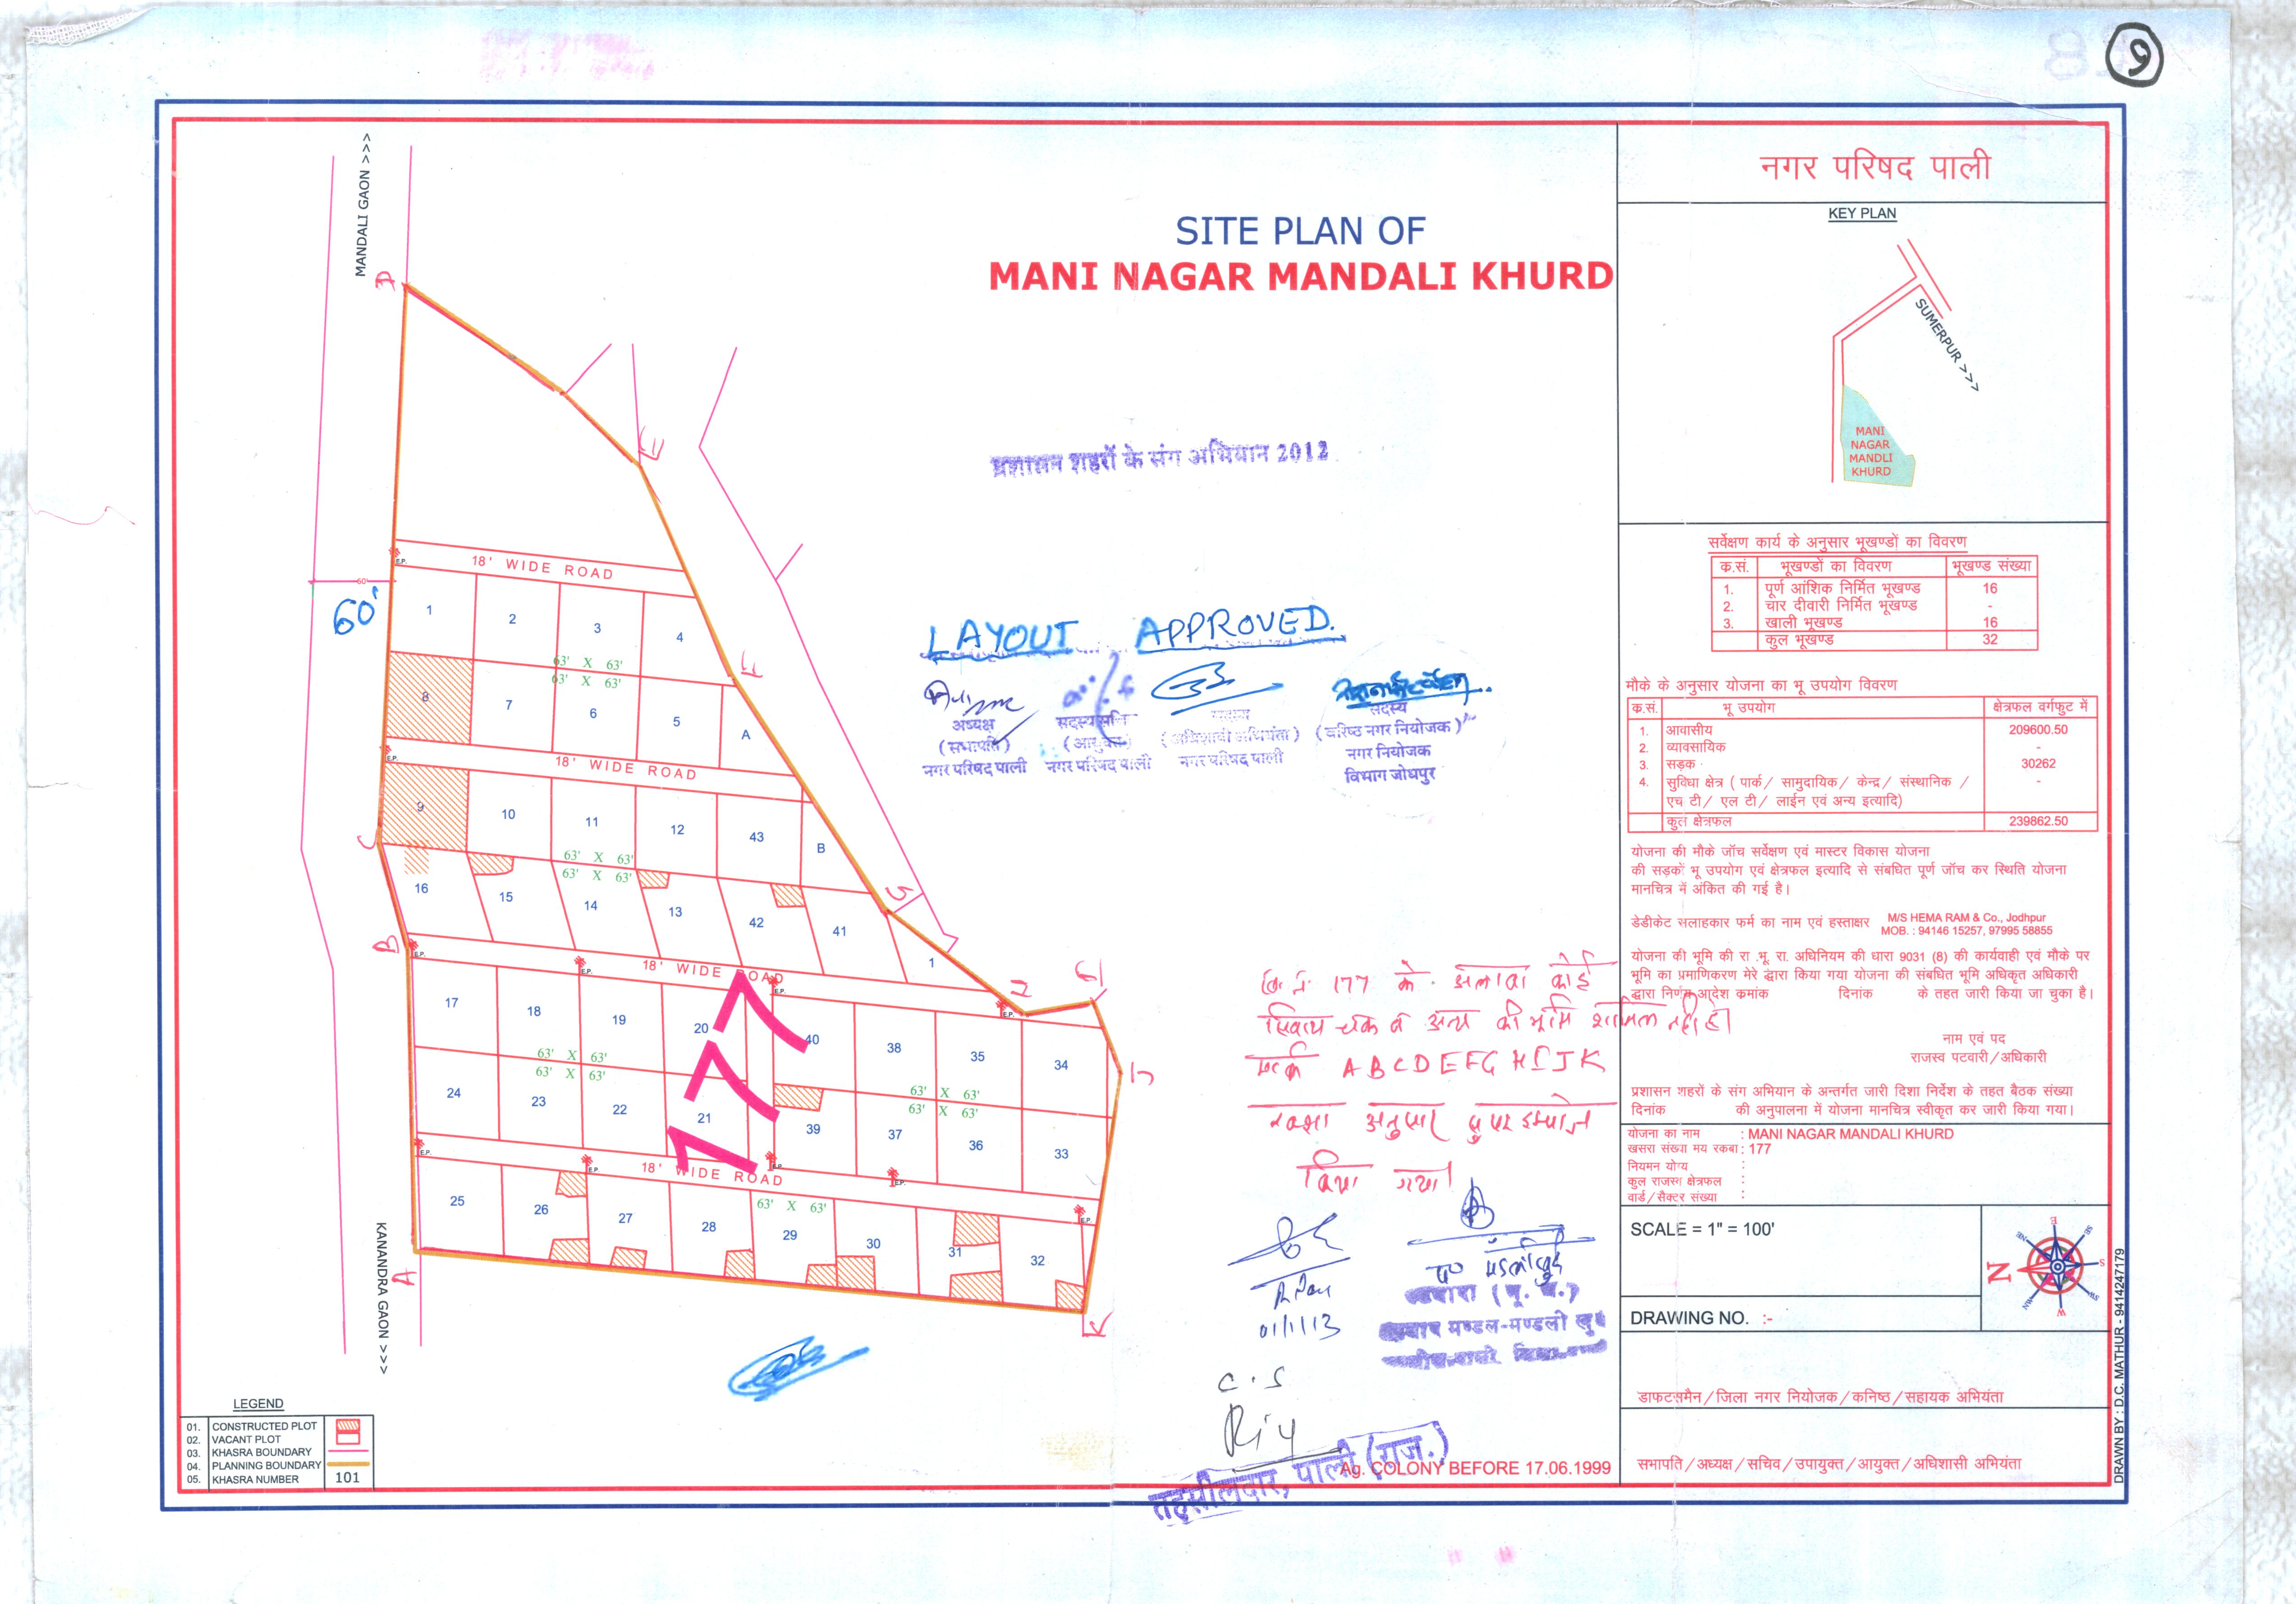 9
नगर परिषद पाली
KEY PLAN
SUMERPUR >>>
MANI
NAGAR
MANDLI
KHURD
SITE PLAN OF
MANI NAGAR MANDALI KHURD
MANDALI GAON >>>
प्रशासन शहरों के संग अभियान 2012
LAYOUT APPROVED.
अध्यक्ष
(सभापति)
नगर परिषद पाली
(आयुक्त)
नगर परिषद पाली
नगर परिषद पाली
सदस्य
(वरिष्ठ नगर नियोजक)
नगर नियोजक
विभाग जोधपुर
सर्वेक्षण कार्य के अनुसार भूखण्डों का विवरण
क्र.सं. भूखण्डों का विवरण भूखण्ड संख्या
1. पूर्ण आंशिक निर्मित भूखण्ड 16
2. चार दीवारी निर्मित भूखण्ड -
3. खाली भूखण्ड 16
कुल भूखण्ड 32
मौके के अनुसार योजना का भू उपयोग विवरण
क्र.सं. भू उपयोग क्षेत्रफल वर्गफुट में
1. आवासीय 209600.50
2. व्यावसायिक -
3. सड़क 30262
4. सुविधा क्षेत्र ( पार्क/ सामुदायिक/ केन्द्र/ संस्थानिक / -
एच टी/ एल टी/ लाईन एवं अन्य इत्यादि)
कुल क्षेत्रफल 239862.50
योजना की मौके जॉच सर्वेक्षण एवं मास्टर विकास योजना
की सड़कों भू उपयोग एवं क्षेत्रफल इत्यादि से संबधित पूर्ण जॉच कर स्थिति योजना
मानचित्र में अंकित की गई है।
डेडीकेट सलाहकार फर्म का नाम एवं हस्ताक्षर M/S HEMA RAM & Co., Jodhpur
MOB. : 94146 15257, 97995 58855
योजना की भूमि की रा .भू. रा. अधिनियम की धारा 9031 (8) की कार्यवाही एवं मौके पर
भूमि का प्रमाणिकरण मेरे द्वारा किया गया योजना की संबधित भूमि अधिकृत अधिकारी
द्वारा निर्णय आदेश क्रमांक दिनांक के तहत जारी किया जा चुका है।
नाम एवं पद
राजस्व पटवारी/अधिकारी
प्रशासन शहरों के संग अभियान के अन्तर्गत जारी दिशा निर्देश के तहत बैठक संख्या
दिनांक की अनुपालना में योजना मानचित्र स्वीकृत कर जारी किया गया।
योजना का नाम : MANI NAGAR MANDALI KHURD
खसरा संख्या मय रकबा : 177
नियमन योग्य :
कुल राजस्व क्षेत्रफल :
वार्ड/सैक्टर संख्या :
SCALE = 1" = 100'
DRAWING NO. :-
N
NE
E
SE
S
SW
W
NW
डाफटसमैन/जिला नगर नियोजक/कनिष्ठ/सहायक अभियंता
सभापति/अध्यक्ष/सचिव/उपायुक्त/आयुक्त/अधिशासी अभियंता
DRAWN BY : D.C. MATHUR - 9414247179
D
E
18' WIDE ROAD
E.P.
60'
60'
1 2 3 4
63' X 63'
63' X 63'
8 7 6 5 A
F
E.P.
18' WIDE ROAD
9 10 11 12 43 B
C
63' X 63'
63' X 63'
16 15 14 13 42 41 1
B
E.P.
E.P.
18' WIDE ROAD
E.P.
E.P.
17 18 19 20 40 38 35 34
177
63' X 63'
63' X 63'
63' X 63'
63' X 63'
24 23 22 21 39 37 36 33
E.P.
E.P.
18' WIDE ROAD
E.P.
E.P.
E.P.
63' X 63'
25 26 27 28 29 30 31 32
A
K
KANANDRA GAON >>>
177 के अलावा कोई
की भूमि शामिल नहीं है।
A B C D E F G H I J K
नक्शा अनुसार
किया गया
01/1/13
C.S
तहसीलदार, पाली (राज.)
Ag. COLONY BEFORE 17.06.1999
LEGEND
01. CONSTRUCTED PLOT
02. VACANT PLOT
03. KHASRA BOUNDARY
04. PLANNING BOUNDARY
05. KHASRA NUMBER 101